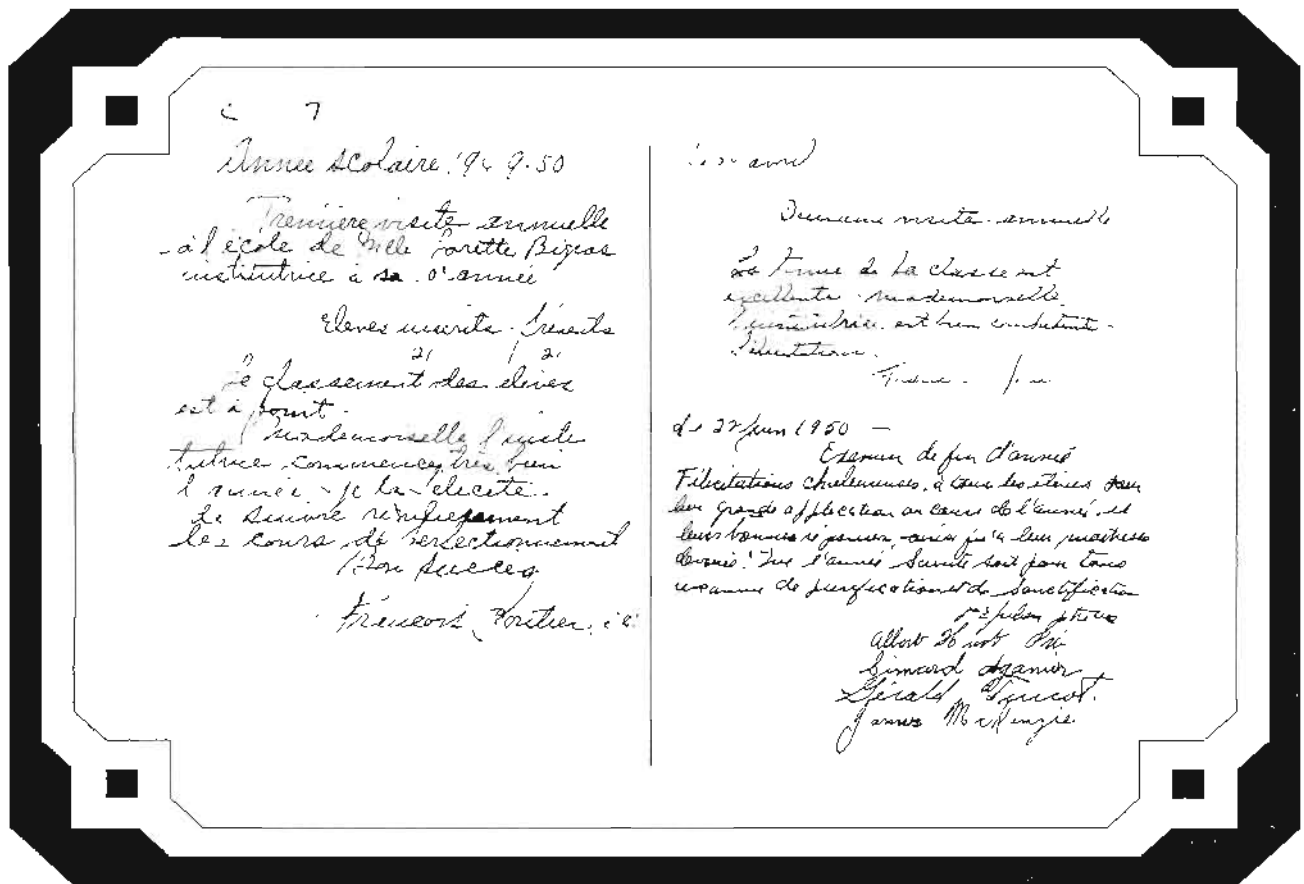 7
Année scolaire 194 9-50
Première visite annuelle
à l'école de Mlle
institutrice à sa année
Eleves inscrits - présents
21 21
Le classement des élèves
est à point.
Mademoiselle l'insti
tutrice commence très bien
l'année - je la félicite.
De suivre
les cours de perfectionnement
Bon succès
François
avril
Deuxième visite annuelle
La tenue de la classe est
excellente. Mademoiselle
l'institutrice est bien
Félicitations.
Le 22 juin 1950 -
Examen de fin d'année
Félicitations chaleureuses, à tous les élèves pour
leur grande application au cours de l'année, et
leurs bonnes réponses, ainsi qu'à leur maîtresse
dévouée! Que l'année Sainte soit pour tous
une année de purification et de sanctification
ptre
Albert
Simard
Gérald Turcot.
James McKenzie